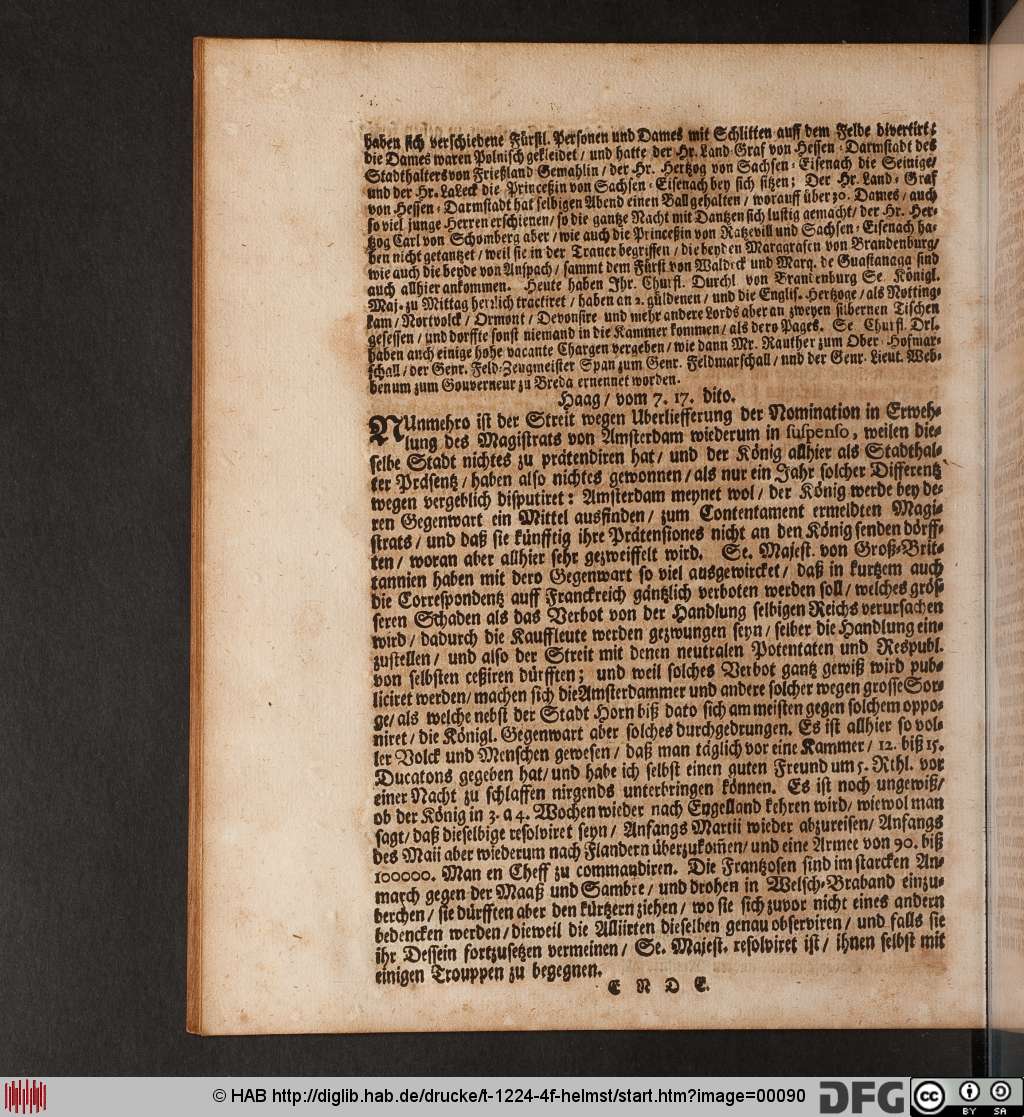 haben sich verschiedene Fürstl. Personen und Dames mit Schlitten auff dem Felde divertirt;
die Dames waren Polnisch gekleidet / und hatte der Hr. Land-Graf von Hessen-Darmstadt des
Stadthalters von Frießland Gemahlin / der Hr. Hertzog von Sachsen-Eisenach die Seinige/
und der Hr. LaLeck die Princeßin von Sachsen-Eisenach bey sich sitzen; Der Hr. Land-Graf
von Hessen-Darmstadt hat selbigen Abend einen Ball gehalten / worauff über 30. Dames / auch
so viel junge Herren erschienen/ so die gantze Nacht mit Dantzen sich lustig gemacht/ der Hr. Her-
tzog Carl von Schomberg aber / wie auch die Princeßin von Ratzevill und Sachsen-Eisenach ha-
ben nicht getantzet / weil sie in der Trauer begriffen / die beyden Marggrafen von Brandenburg/
wie auch die beyde von Anspach / sammt dem Fürst von Waldeck und Marq. de Guastanaga sind
auch allhier ankommen. Heute haben Ihr. Churfl. Durchl von Brandenburg Se Königl.
Maj. zu Mittag herrlich tractiret / haben an 2. güldenen / und die Englis. Hertzoge / als Notting-
kam / Nortvolck / Ormont / Devonsire und mehr andere Lords aber an zweyen silbernen Tischen
gesessen / und dorffte sonst niemand in die Kammer kommen / als dero Pages. Se Churfl. Drl.
haben auch einige hohe vacante Chargen vergeben / wie dann Mr. Rauther zum Ober-Hofmar-
schall / der Genr. Feld-Zeugmeister Span zum Genr. Feldmarschall / und der Genr. Lieut. Web-
benum zum Gouverneur zu Breda ernennet worden.
Haag / vom 7. 17. dito.
NUnmehro ist der Streit wegen Uberliefferung der Nomination in Erweh-
lung des Magistrats von Amsterdam wiederum in suspenso, weilen die-
selbe Stadt nichtes zu prätendiren hat / und der König allhier als Stadthal-
ter Präsentz / haben also nichtes gewonnen / als nur ein Jahr solcher Differentz
wegen vergeblich disputiret: Amsterdam meynet wol / der König werde bey de-
ren Gegenwart ein Mittel ausfinden / zum Contentament ermeldten Magi-
strats / und daß sie künfftig ihre Prätensiones nicht an den König senden dörff-
ten / woran aber allhier sehr gezweiffelt wird. Se. Majest. von Groß-Brit-
tannien haben mit dero Gegenwart so viel ausgewircket / daß in kurtzem auch
die Correspondentz auff Franckreich gäntzlich verboten werden soll / welches grös-
seren Schaden als das Verbot von der Handlung selbigen Reichs verursachen
wird / dadurch die Kauffleute werden gezwungen seyn / selber die Handlung ein-
zustellen / und also der Streit mit denen neutralen Potentaten und Respubl.
von selbsten ceßiren dürfften; und weil solches Verbot gantz gewiß wird pub-
liciret werden/ machen sich die Amsterdammer und andere solcher wegen grosse Sor-
ge/ als welche nebst der Stadt Horn biß dato sich am meisten gegen solchem oppo-
niret / die Königl. Gegenwart aber solches durchgedrungen. Es ist allhier so vol-
ler Volck und Menschen gewesen / daß man täglich vor eine Kammer / 12. biß 15.
Ducatons gegeben hat/ und habe ich selbst einen guten Freund um 5. Rthl. vor
einer Nacht zu schlaffen nirgends unterbringen können. Es ist noch ungewiß/
ob der König in 3. a 4. Wochen wieder nach Engelland kehren wird/ wiewol man
sagt/ daß dieselbige resolviret seyn / Anfangs Martii wieder abzureisen/ Anfangs
des Maii aber wiederum nach Flandern überzukom̃en/ und eine Armee von 90. biß
100000. Man en Cheff zu commandiren. Die Frantzosen sind im starcken An-
march gegen der Maaß und Sambre / und drohen in Welsch-Braband einzu-
berchen / sie dürfften aber den kürtzern ziehen / wo sie sich zuvor nicht eines andern
bedencken werden / dieweil die Alliirten dieselben genau observiren / und falls sie
ihr Dessein fortzusetzen vermeinen / Se. Majest. resolviret ist / ihnen selbst mit
einigen Trouppen zu begegnen.
E N D E.
© HAB http://diglib.hab.de/drucke/t-1224-4f-helmst/start.htm?image=00090
DFG
cc
BY SA